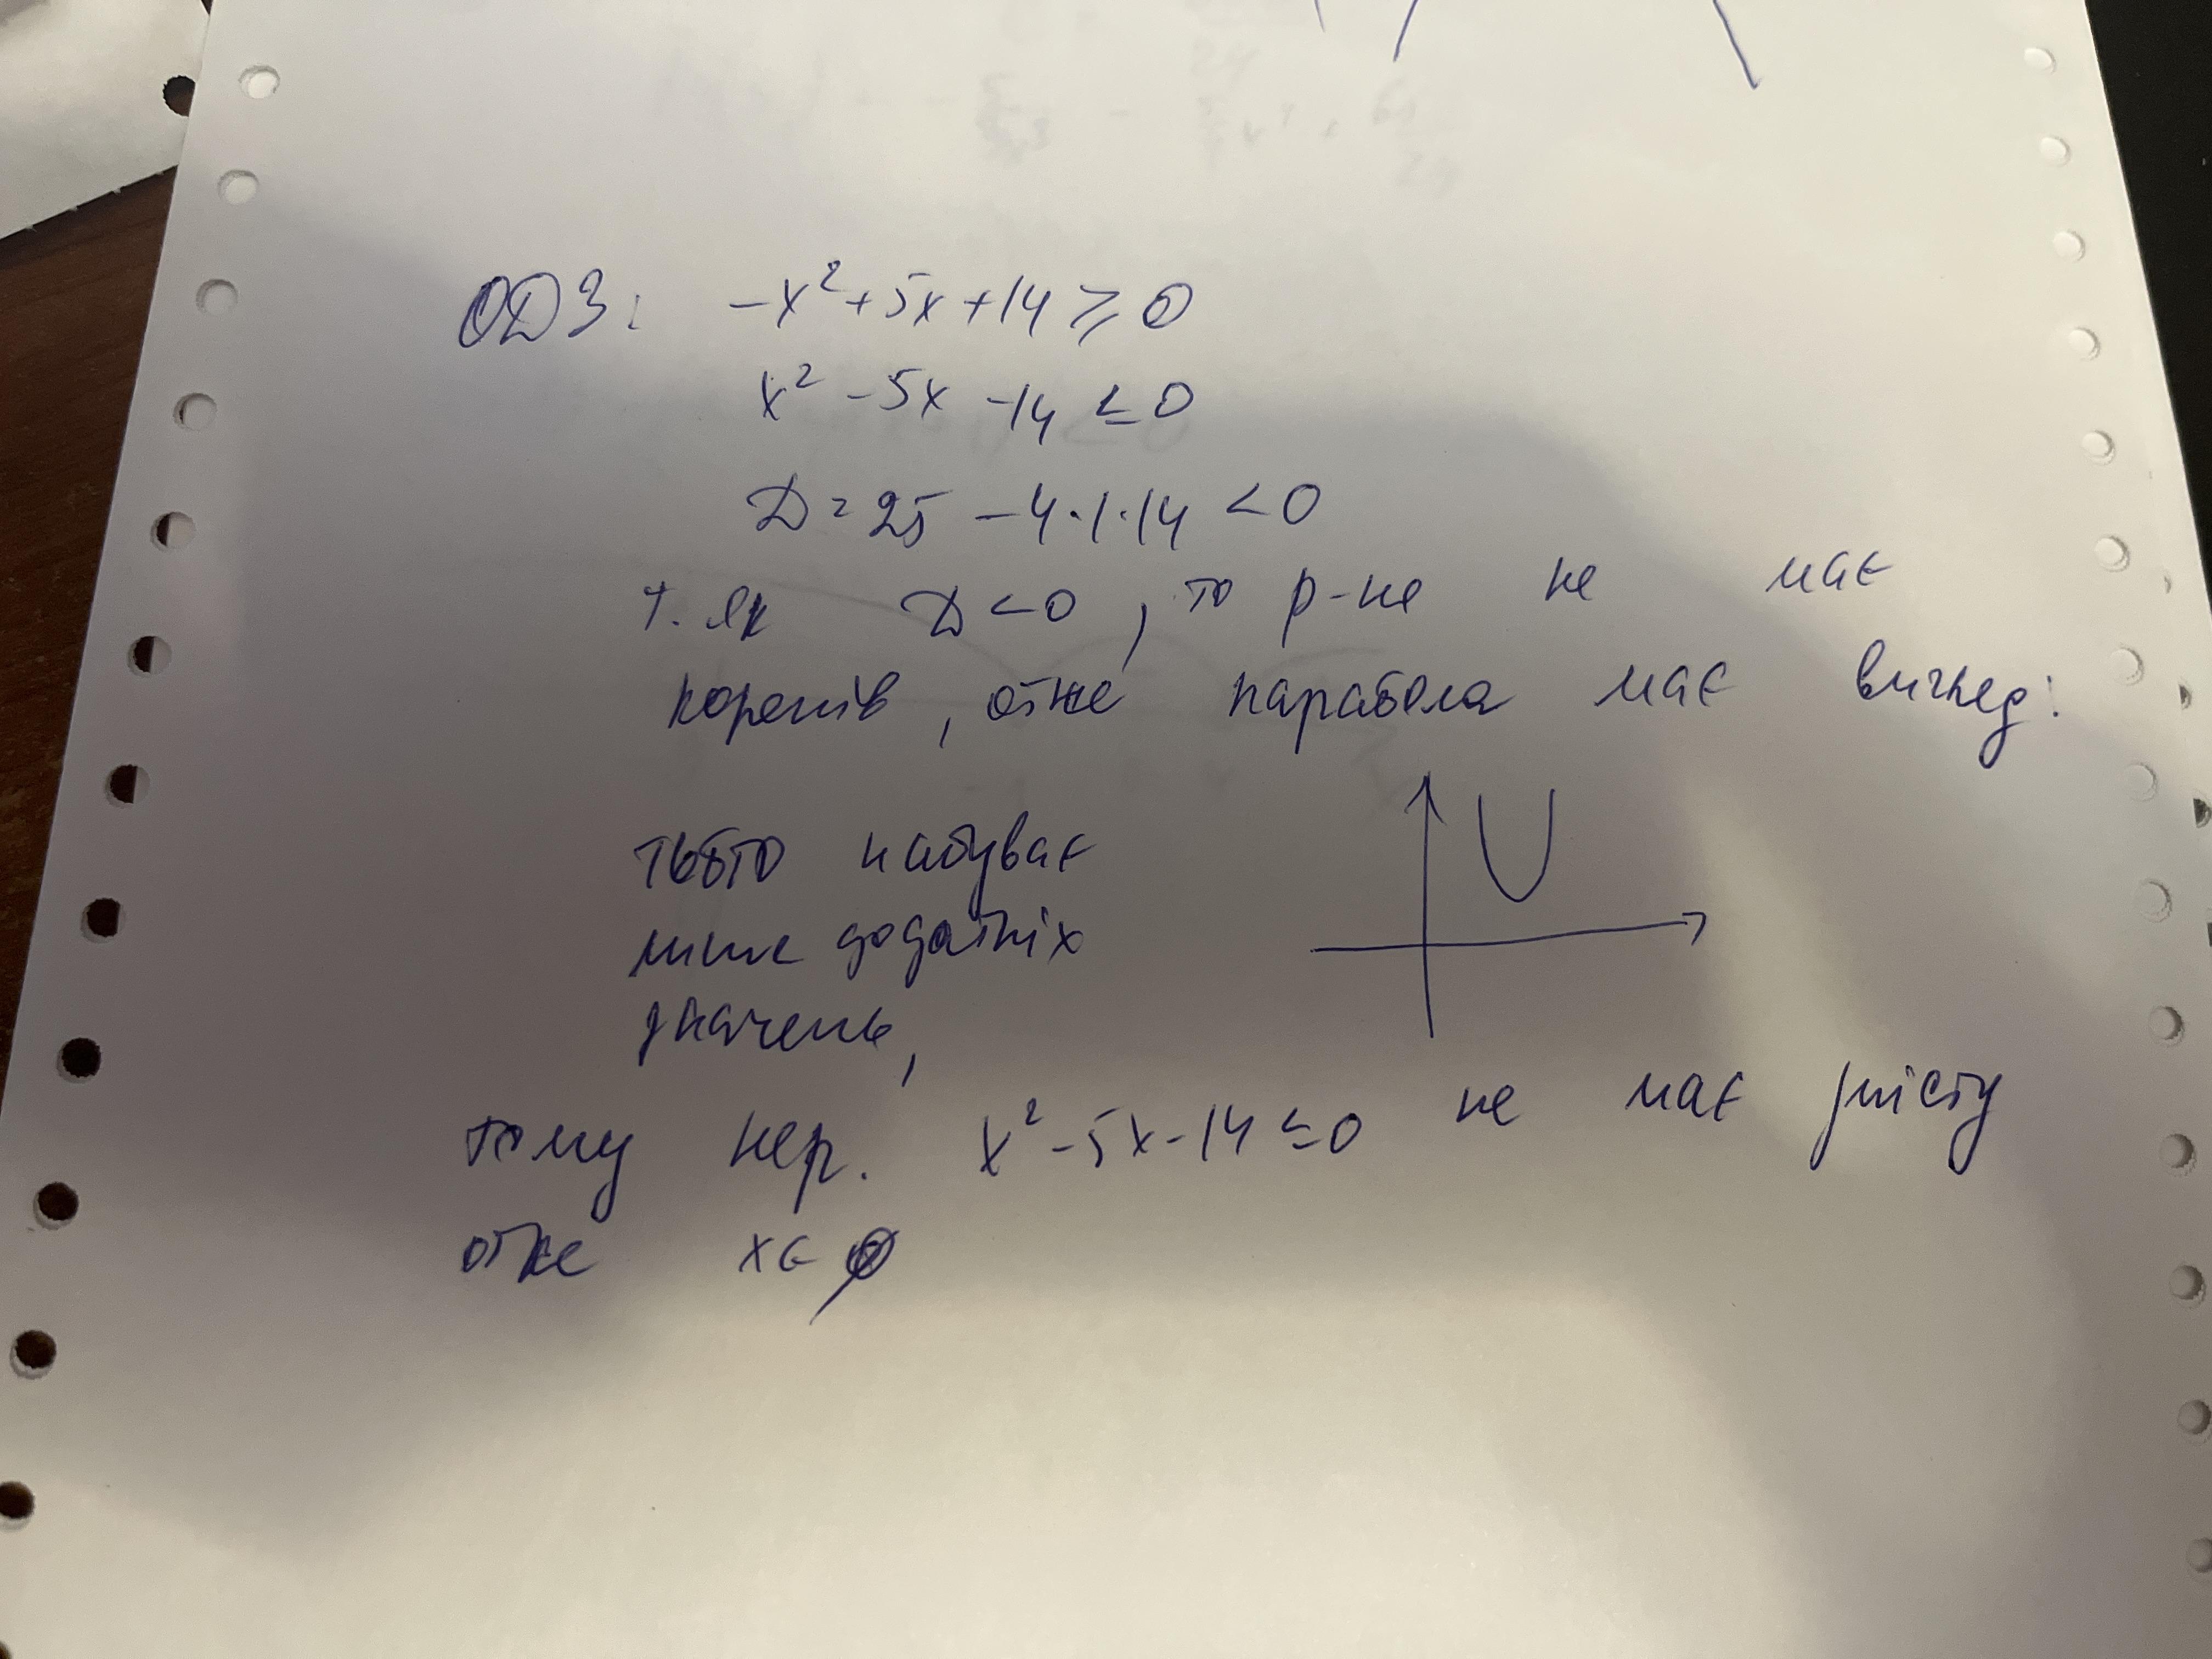 ОДЗ: -x²+5x+14 ≥ 0
x² -5x -14 ≤ 0
D = 25 -4·1·14 < 0
т. як D < 0, то р-не не має
коренів, отже парабола має вигляд:
тобто набуває
лише додатніх
значень,
тому нер. x²-5x-14 ≤ 0 не має змісту
отже x ∈ ∅